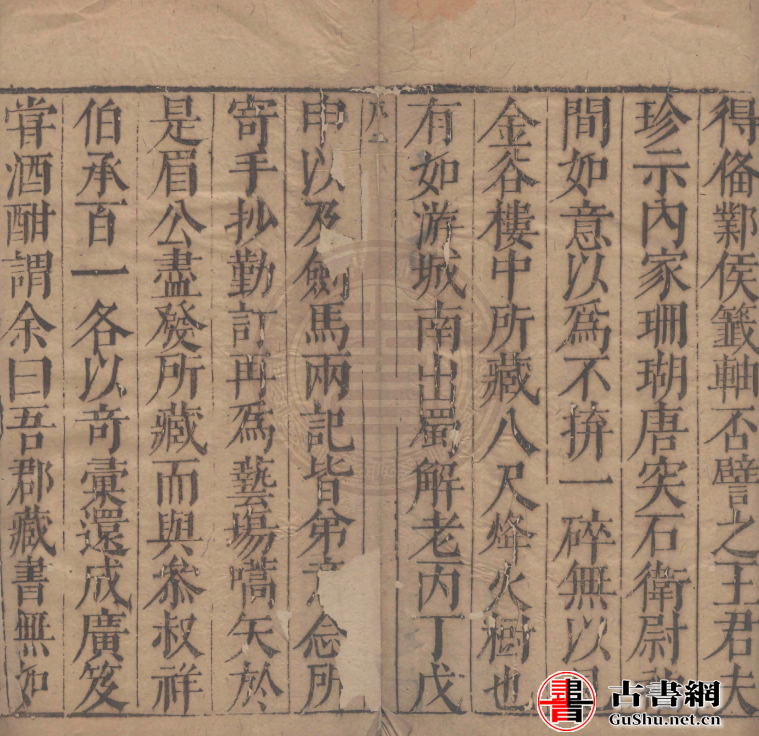 得偹鄴侯籤軸否譬之王君夫
珍示內家珊瑚唐突石衛尉
間如意以爲不擠一碎無以
金谷樓中所藏八尺烽火樹也
有如游城南出蜀解老丙丁戊
申以及劍馬兩記皆弟意念所
寄手抄勤訂再爲藝場嚆矢於
是眉公盡發所藏而與叅叔祥
伯承百一各以奇彙還成廣笈
甞酒酣謂余曰吾郡藏書無如
古書網
GuShu.net.cn